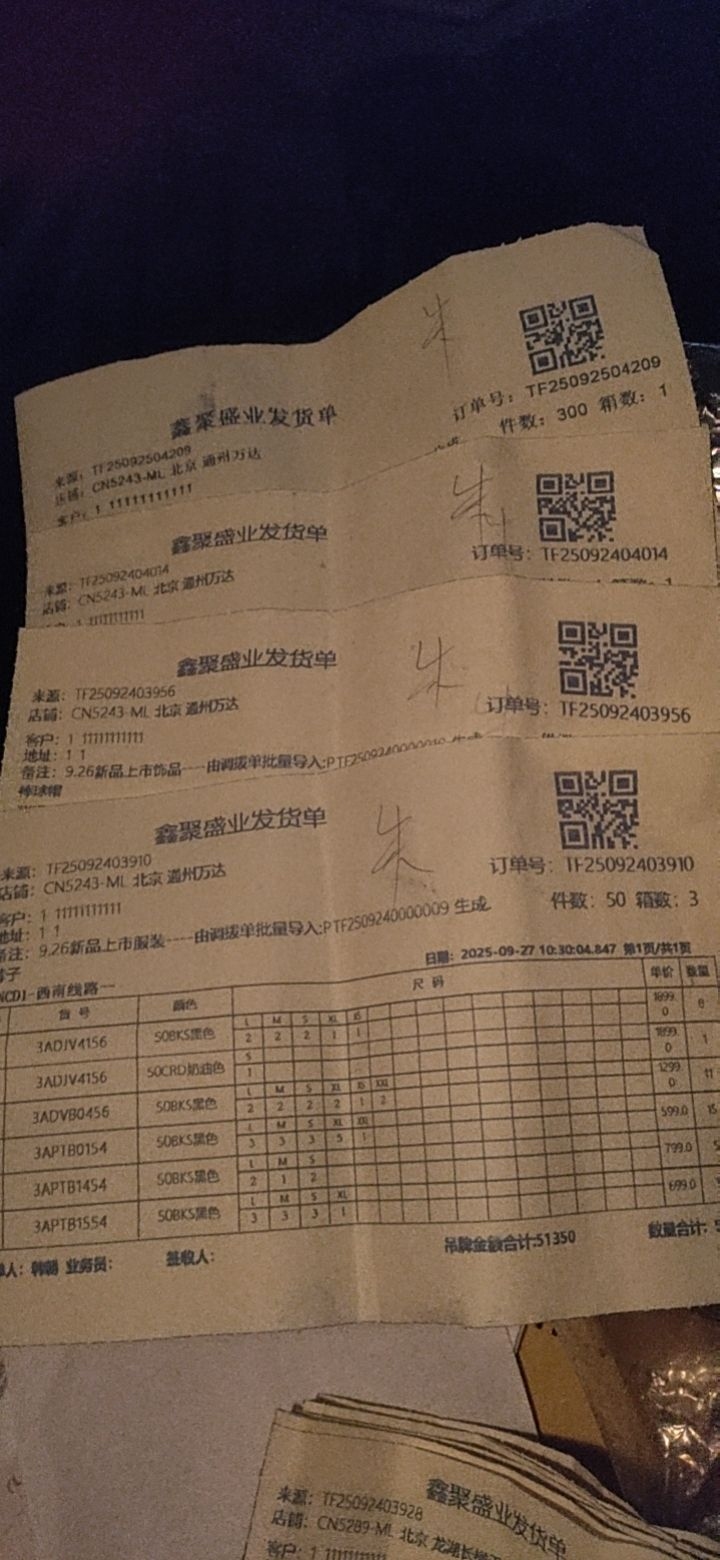 朱
鑫聚盛业发货单
订单号：TF25092504209
件数：300 箱数：1
来源：TF25092504209
店铺：CN5243-ML 北京 通州万达
客户：1 11111111111
朱
鑫聚盛业发货单
订单号：TF25092404014
来源：TF25092404014
店铺：CN5243-ML 北京 通州万达
1 11111111111
朱
鑫聚盛业发货单
订单号：TF25092403956
来源：TF25092403956
店铺：CN5243-ML 北京 通州万达
客户：1 11111111111
地址：1 1
备注：9.26新品上市饰品----由调拨单批量导入:PTF2509240000010 生成
棒球帽
朱
鑫聚盛业发货单
订单号：TF25092403910
件数：50 箱数：3
来源：TF25092403910
店铺：CN5243-ML 北京 通州万达
客户：1 11111111111
地址：1 1
备注：9.26新品上市服装----由调拨单批量导入:PTF2509240000009 生成
日期：2025-09-27 10:30:04.847 第1页/共1页
NCDJ-西南线路一
货号 颜色 尺码 单价 数量
L M S XL XS
3ADJV4156 50BKS黑色 2 2 2 1 1 1899.0 8
S
3ADJV4156 50CRD奶油色 1 1899.0 1
L M S XL XS XXL
3ADVB0456 50BKS黑色 2 2 2 2 1 2 1299.0 11
L M S XL XXL
3APTB0154 50BKS黑色 3 3 3 5 1 599.0 15
L M S
3APTB1454 50BKS黑色 2 1 2 799.0
L M S XL
3APTB1554 50BKS黑色 3 3 3 1 699.0
业务员： 签收人： 吊牌金额合计:51350 数量合计:
鑫聚盛业发货单
来源：TF25092403928
店铺：CN5289-ML 北京 龙湖长楹
客户：1 11111111111